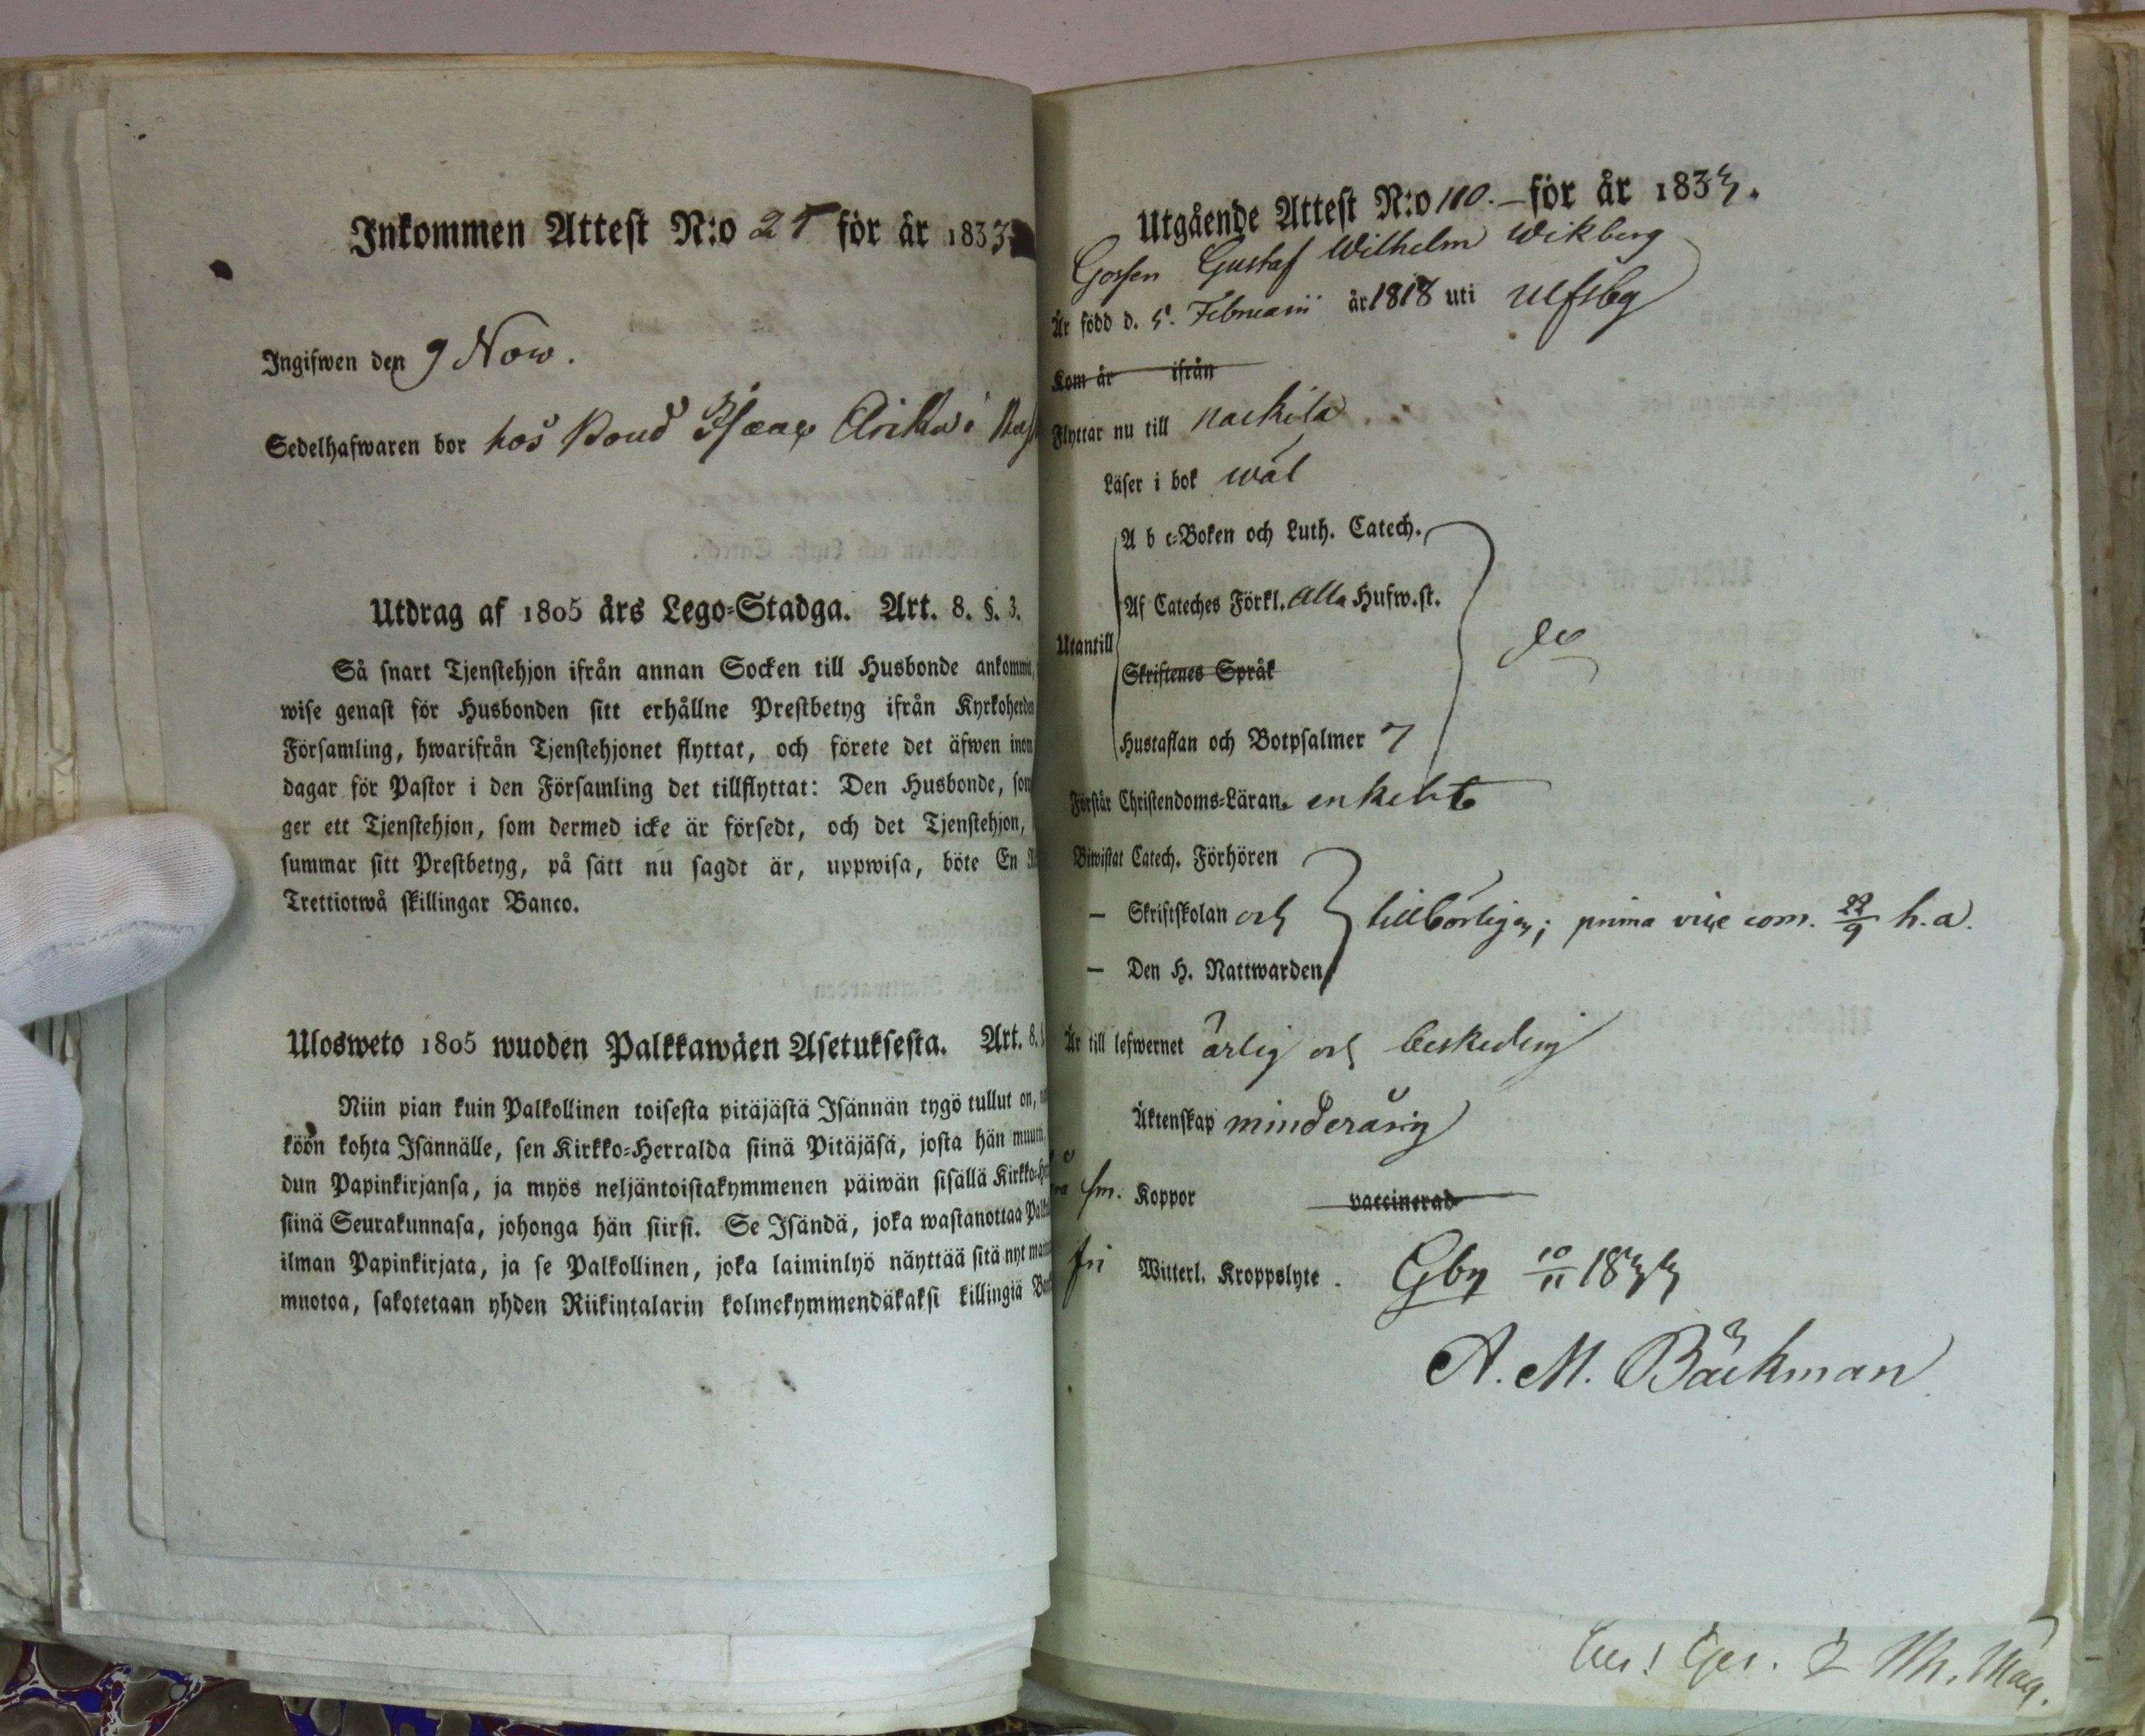 Inkommen Attest N:o 25 för år 1833.
Ingifwen den 9 Nov.
Sedelhafwaren bor hos Bond Isaac i
Utdrag af 1805 års Lego-Stadga. Art. 8. §. 3.
Så snart Tjenstehjon ifrån annan Socken till Husbonde
wise genast för Husbonden sitt erhållne Prestbetyg ifrån
Församling, hwarifrån Tjenstehjonet flyttat, och förete det äfwen
dagar för Pastor i den Församling det tillflyttat: Den Husbonde,
ger ett Tjenstehjon, som dermed icke är försedt, och det Tjenstehjon,
summar sitt Prestbetyg, på sätt nu sagdt är, uppwisa, böte En
Trettiotwå skillingar Banco.
Ulosweto 1805 wuoden Palkkawäen Asetuksesta. Art. 8.
Niin pian kuin Palkollinen toisesta pitäjästä Isännän tygö tullut on,
köön kohta Isännälle, sen Kirkko-Herralda siinä Pitäjäsä, josta hän
dun Papinkirjansa, ja myös neljäntoistakymmenen päiwän sisällä
siinä Seurakunnasa, johonga hän siirsi. Se Isändä, joka wastanottaa
ilman Papinkirjata, ja se Palkollinen, joka laiminlyö näyttää sitä nyt
muotoa, sakotetaan yhden Riikintalarin kolmekymmendäkaksi killingiä
Utgående Attest N:o 110. för år 1833.
Gossen Gustaf Wilhelm Wikberg
Är född d. 5. Februarii år 1818 uti Ulfsby
Kom år ifrån
Flyttar nu till Nackila
Läser i bok wäl
A b c-Boken och Luth. Catech.
Af Cateches Förkl. alla Husw.st.
Utantill
Skriftenes Språk
Hustaflan och Botpsalmer 7
Förstår Christendoms-Läran enkelt
Biwistat Catech. Förhören
— Skriftskolan och tillbörligen; prima vice com. 22/9 h.a.
— Den H. Nattwarden
Är till lefwernet ärlig och beskedlig
Äktenskap minderårig
Koppor vaccinerad
fri Witterl. Kroppslyte. Gby 10/11 1833
A. M. Bäckman